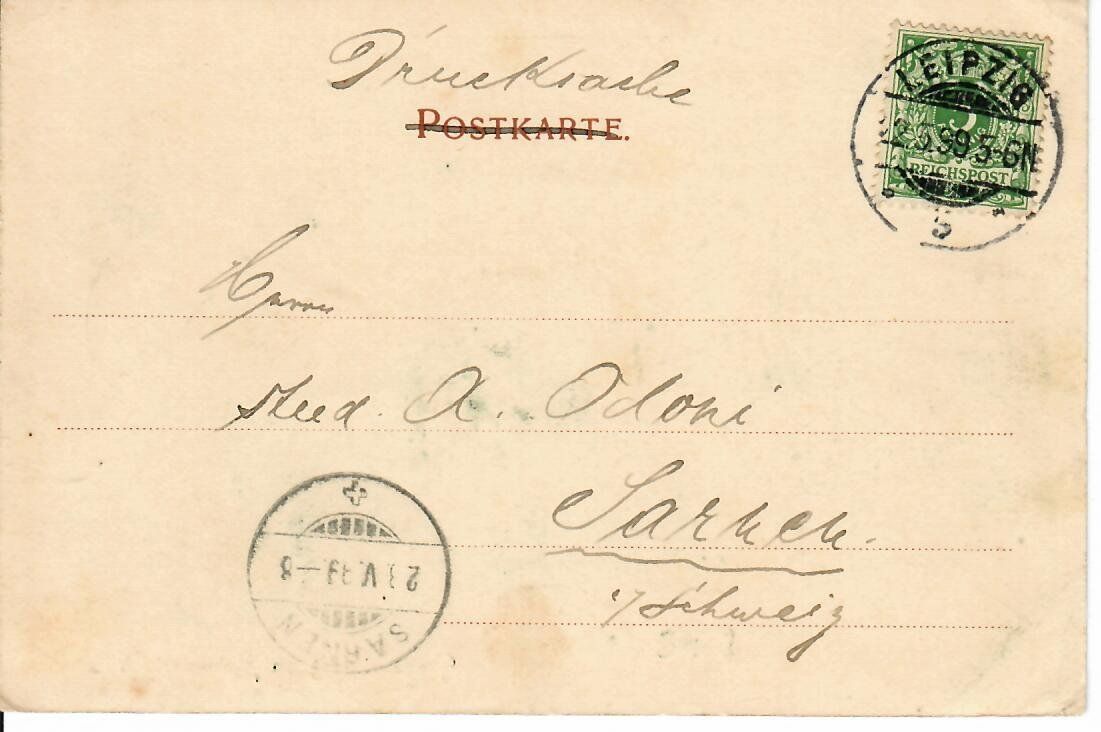 Drucksache
POSTKARTE.
LEIPZIG
5
REICHSPOST
99 5-6N
5
Herrn
stud. A. Odoni
Sarnen.
i/Schweiz
23 V. 99-8
SARNEN